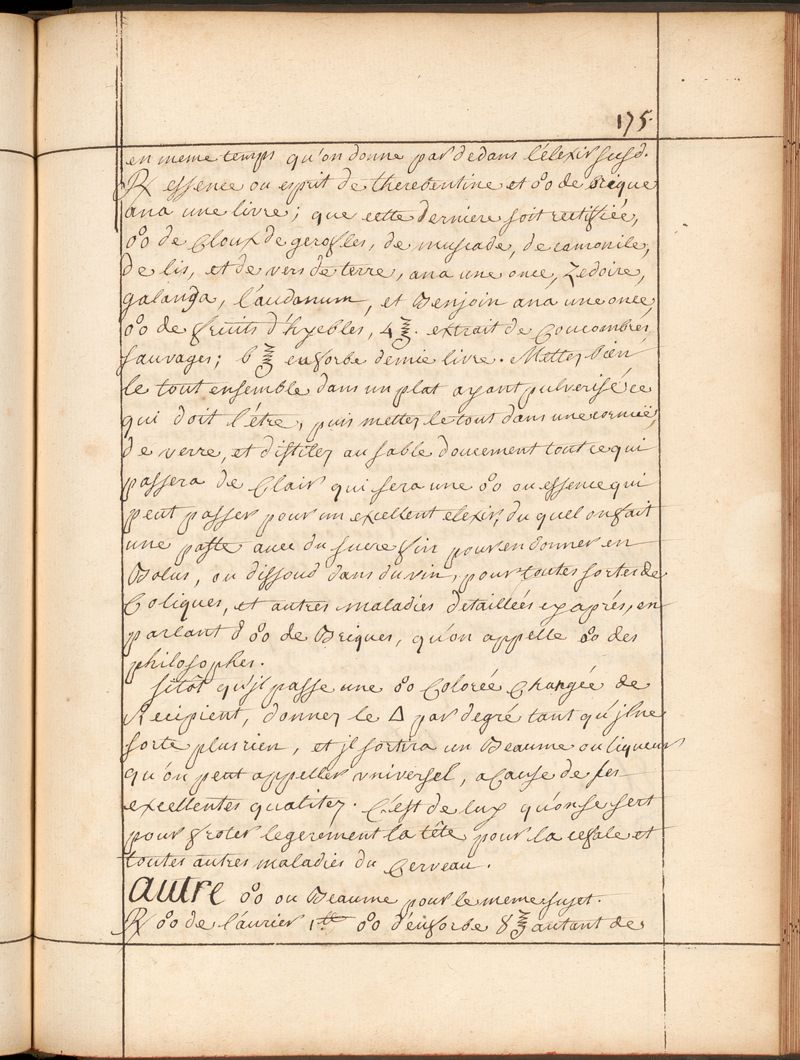 175.
en meme temps qu'on donne par dedans l'élexir susd.
℞ essence ou esprit de therebentine et o°o de brique
ana une livre; que cette derniere soit rectifiée,
o°o de Cloux de gerofles, de muscade, de camomile,
de lis, et de vers de terre, ana une once, Zedoire,
galanga, l'audanum, et Benjoin ana une once
o°o de fruits d'hyebles, 4 ℥. extrait de Coucombres
sauvages; 6 ℥ euforbe demie livre. Mettez bien
le tout ensemble dans un plat ayant pulverisé ce
qui doit l'être, puis mettez le tout dans une cornüe
de verre, et distilez au sable doucement tout ce qui
passera de Clair qui sera une o°o ou essence qui
peut passer pour un excellent elexir, du quel on fait
une paste avec du sucre fin pour en donner en
Bolus, ou dissoud dans du vin, pour toutes sortes de
Coliques, et autres maladies detaillées cy aprés, en
parlant d o°o de Briques, qu'on appelle o°o des
philosophes.
Sitôt qu'jl passe une o°o Colorée Changée de
Recipient, donnez le △ par degré tant qu'jl ne
sorte plus rien, et jl sortira un Beaume ou liqueur
qu'on peut appeller vniversel, a Cause de ses
excellentes qualitez. C'est de luy qu'on se sert
pour froter legerement la tête pour la cefale et
toutes autres maladies du Cerveau.
autre o°o ou Beaume pour le meme sujet.
℞ o°o de l'aurier 1 ℔ o°o d'euforbe 8 ℥ autant de